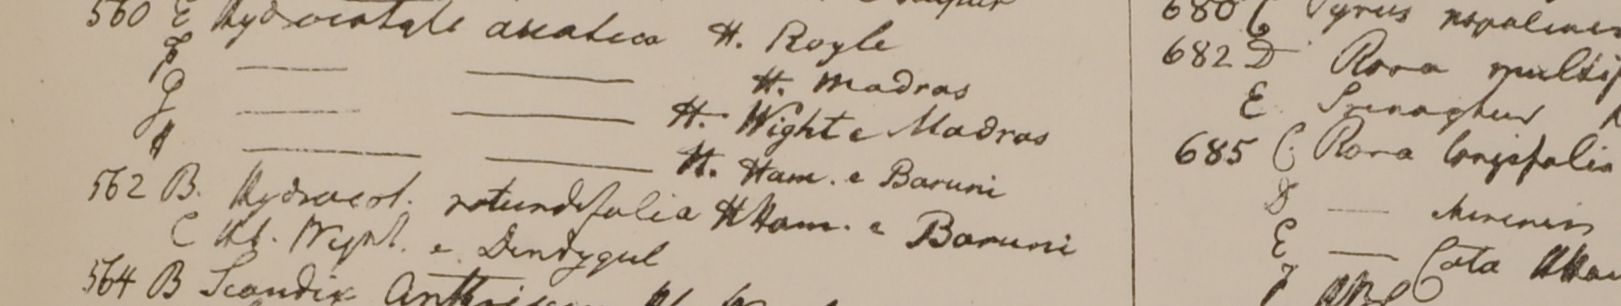 560 E Hydrocotyle asiatica H. Royle
F — — H. Madras
G — — H. Wight e Madras
H — — H. Ham. e Baruni
562 B. Hydrocot. rotundifolia H Ham. e Baruni
C Hb. Wight. e. Dindygul
564 B Scandix Anthriscus
680 C Pyrus nepalensis
682 D Rosa
E Srinaghur
685 C. Rosa longifolia
D — sinensis
E — Cata HHam